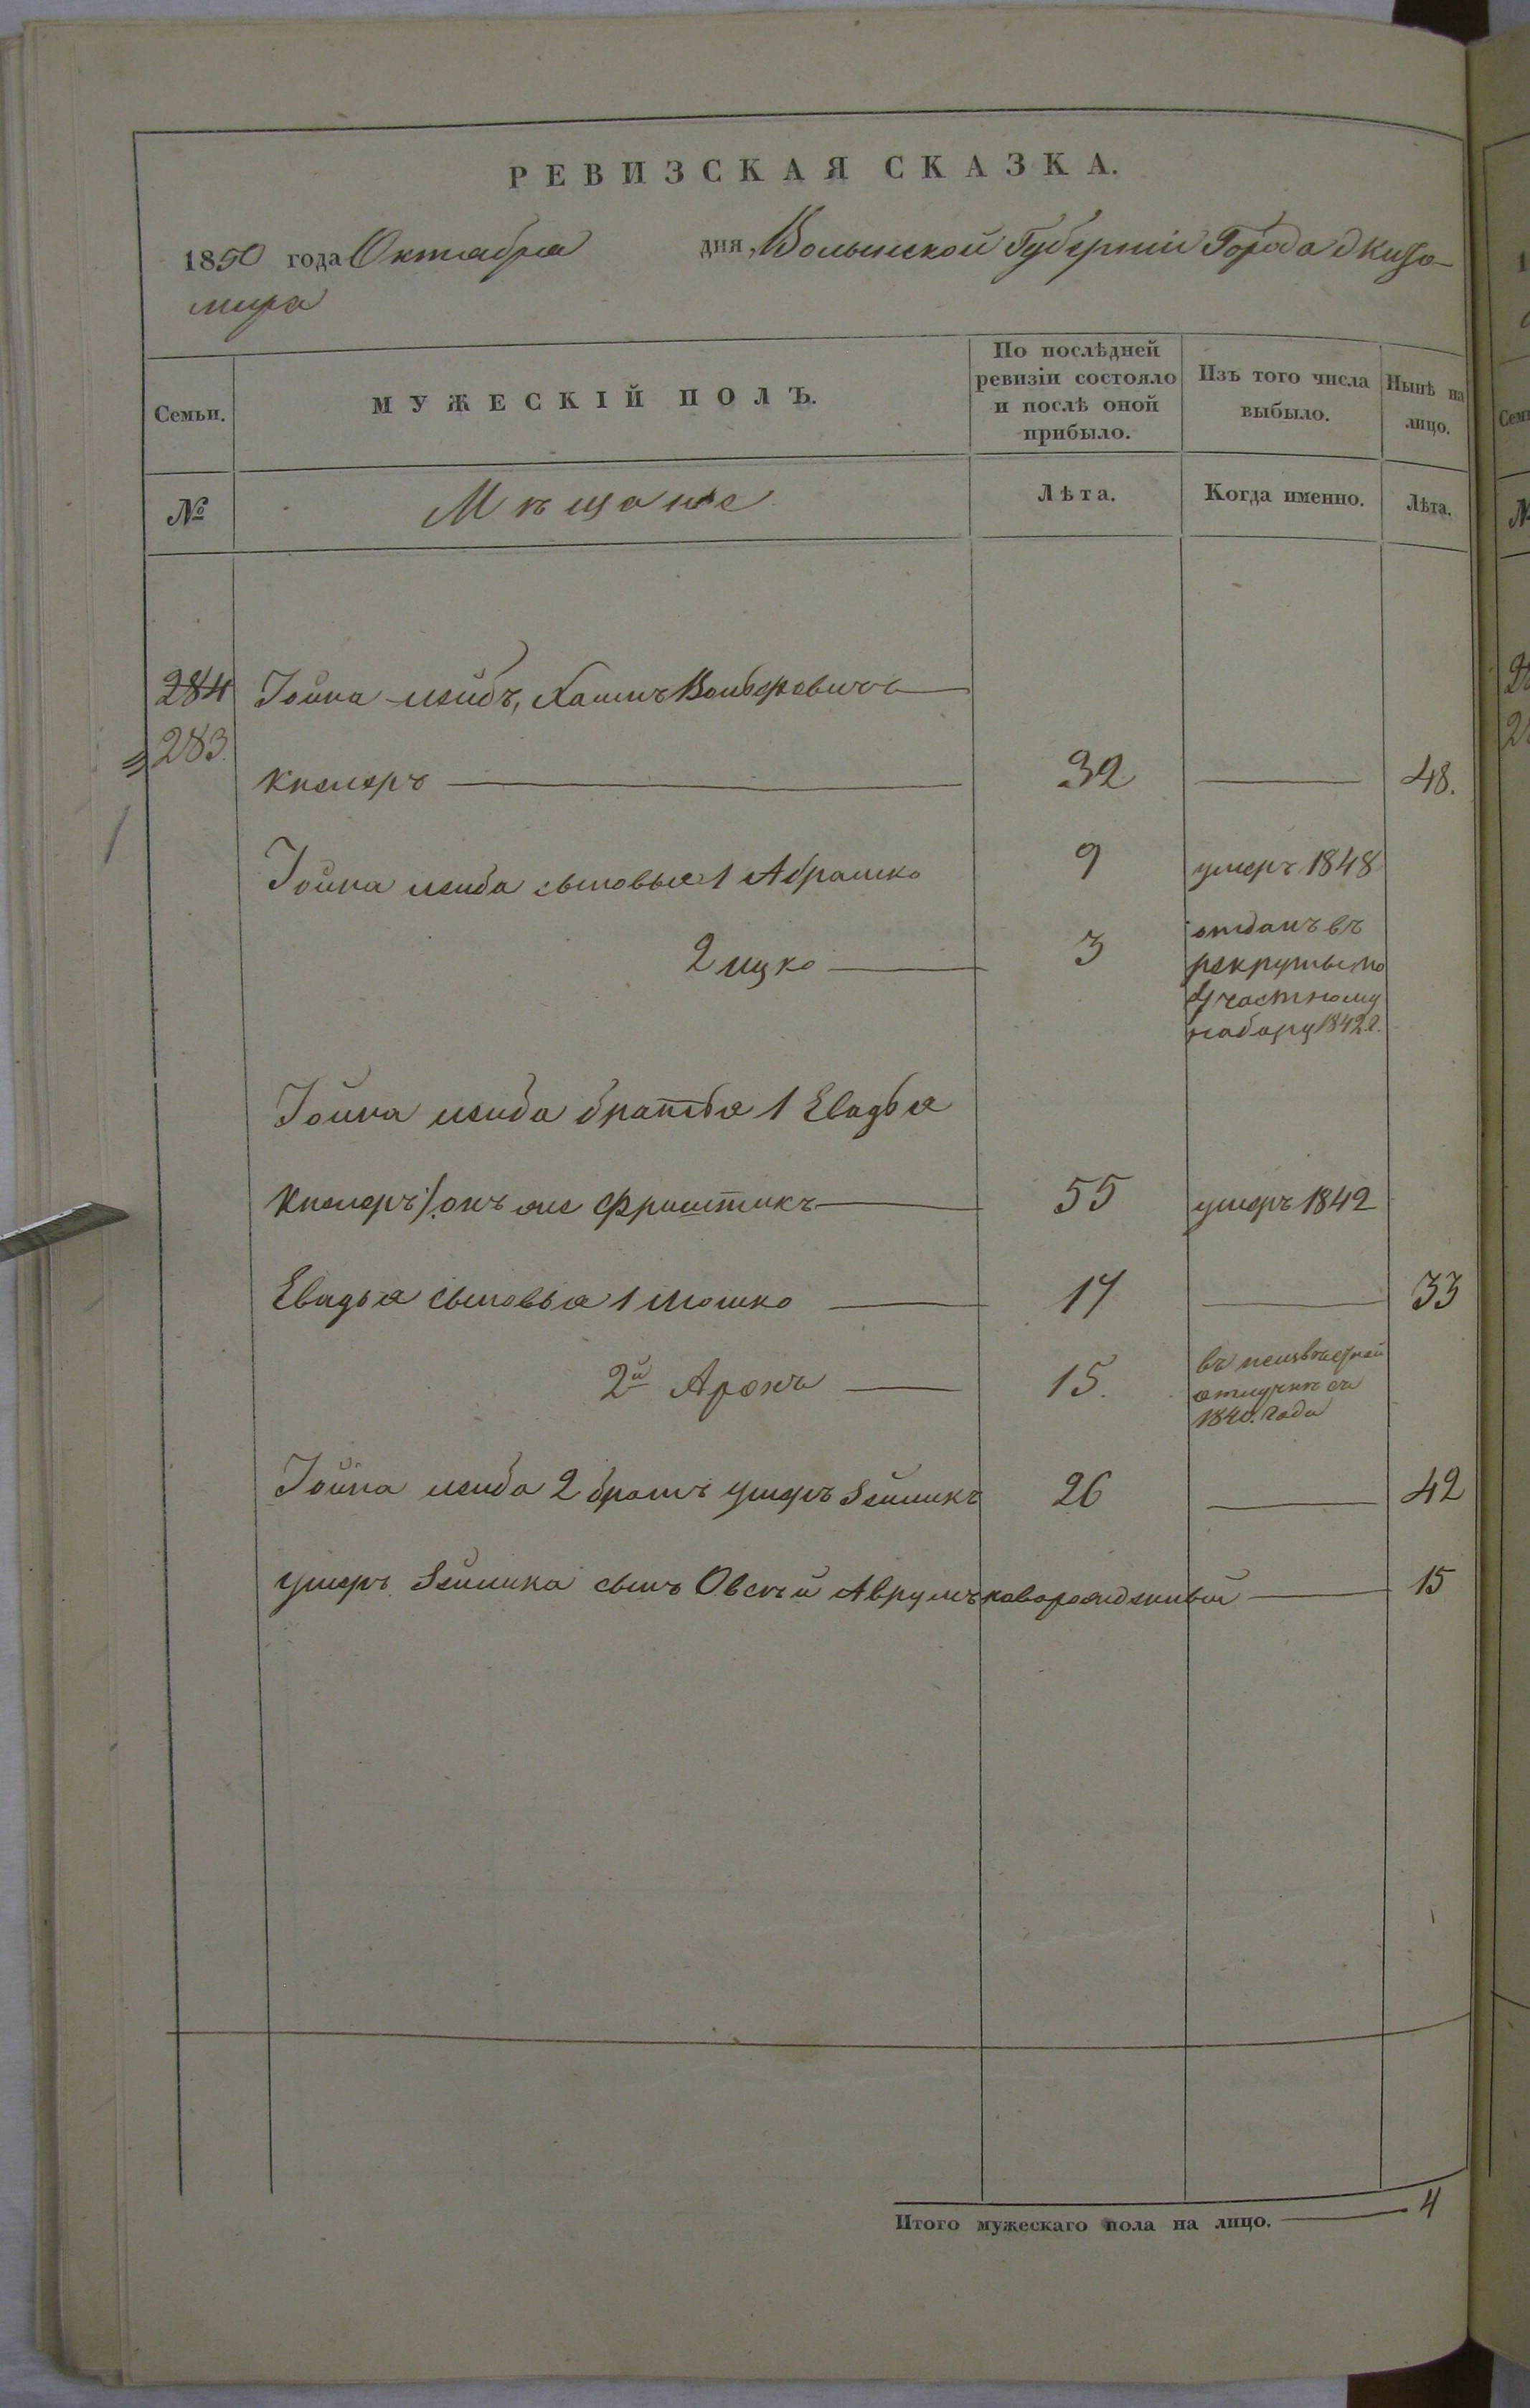 РЕВИЗСКАЯ СКАЗКА.
1850 года Октября дня, Волынской Губерніи Города Жито-
мира
Семьи.
МУЖЕСКІЙ ПОЛЪ.
По послѣдней
ревизіи состояло
и послѣ оной
прибыло.
Изъ того числа
выбыло.
Нынѣ на
лицо.
№ Мѣщане Лѣта. Когда именно. Лѣта.
284 Іойна Лейбъ, Хаимъ Вольфовичъ
283.
Кнелеръ 32 48.
Іойна Лейба сыновья 1 Абрашко 9 умеръ 1848
2 Ицко 3 отданъ въ
рекруты по
4 частному
набору 1842 г.
Іойна Лейба братья 1 Евадья
Кнелеръ онъ же Фриштикъ 55 умеръ 1842
Евадья сыновья 1 Мошко 17 33
2й Аронъ 15. въ неизвѣстной
отлучкѣ съ
1840. года
Іойна Лейба 2 братъ Ушеръ Зейликъ 26 42
Ушеръ Зейлика сынъ Овсѣй Аврумъ новорожденный 15
Итого мужескаго пола на лицо. 4